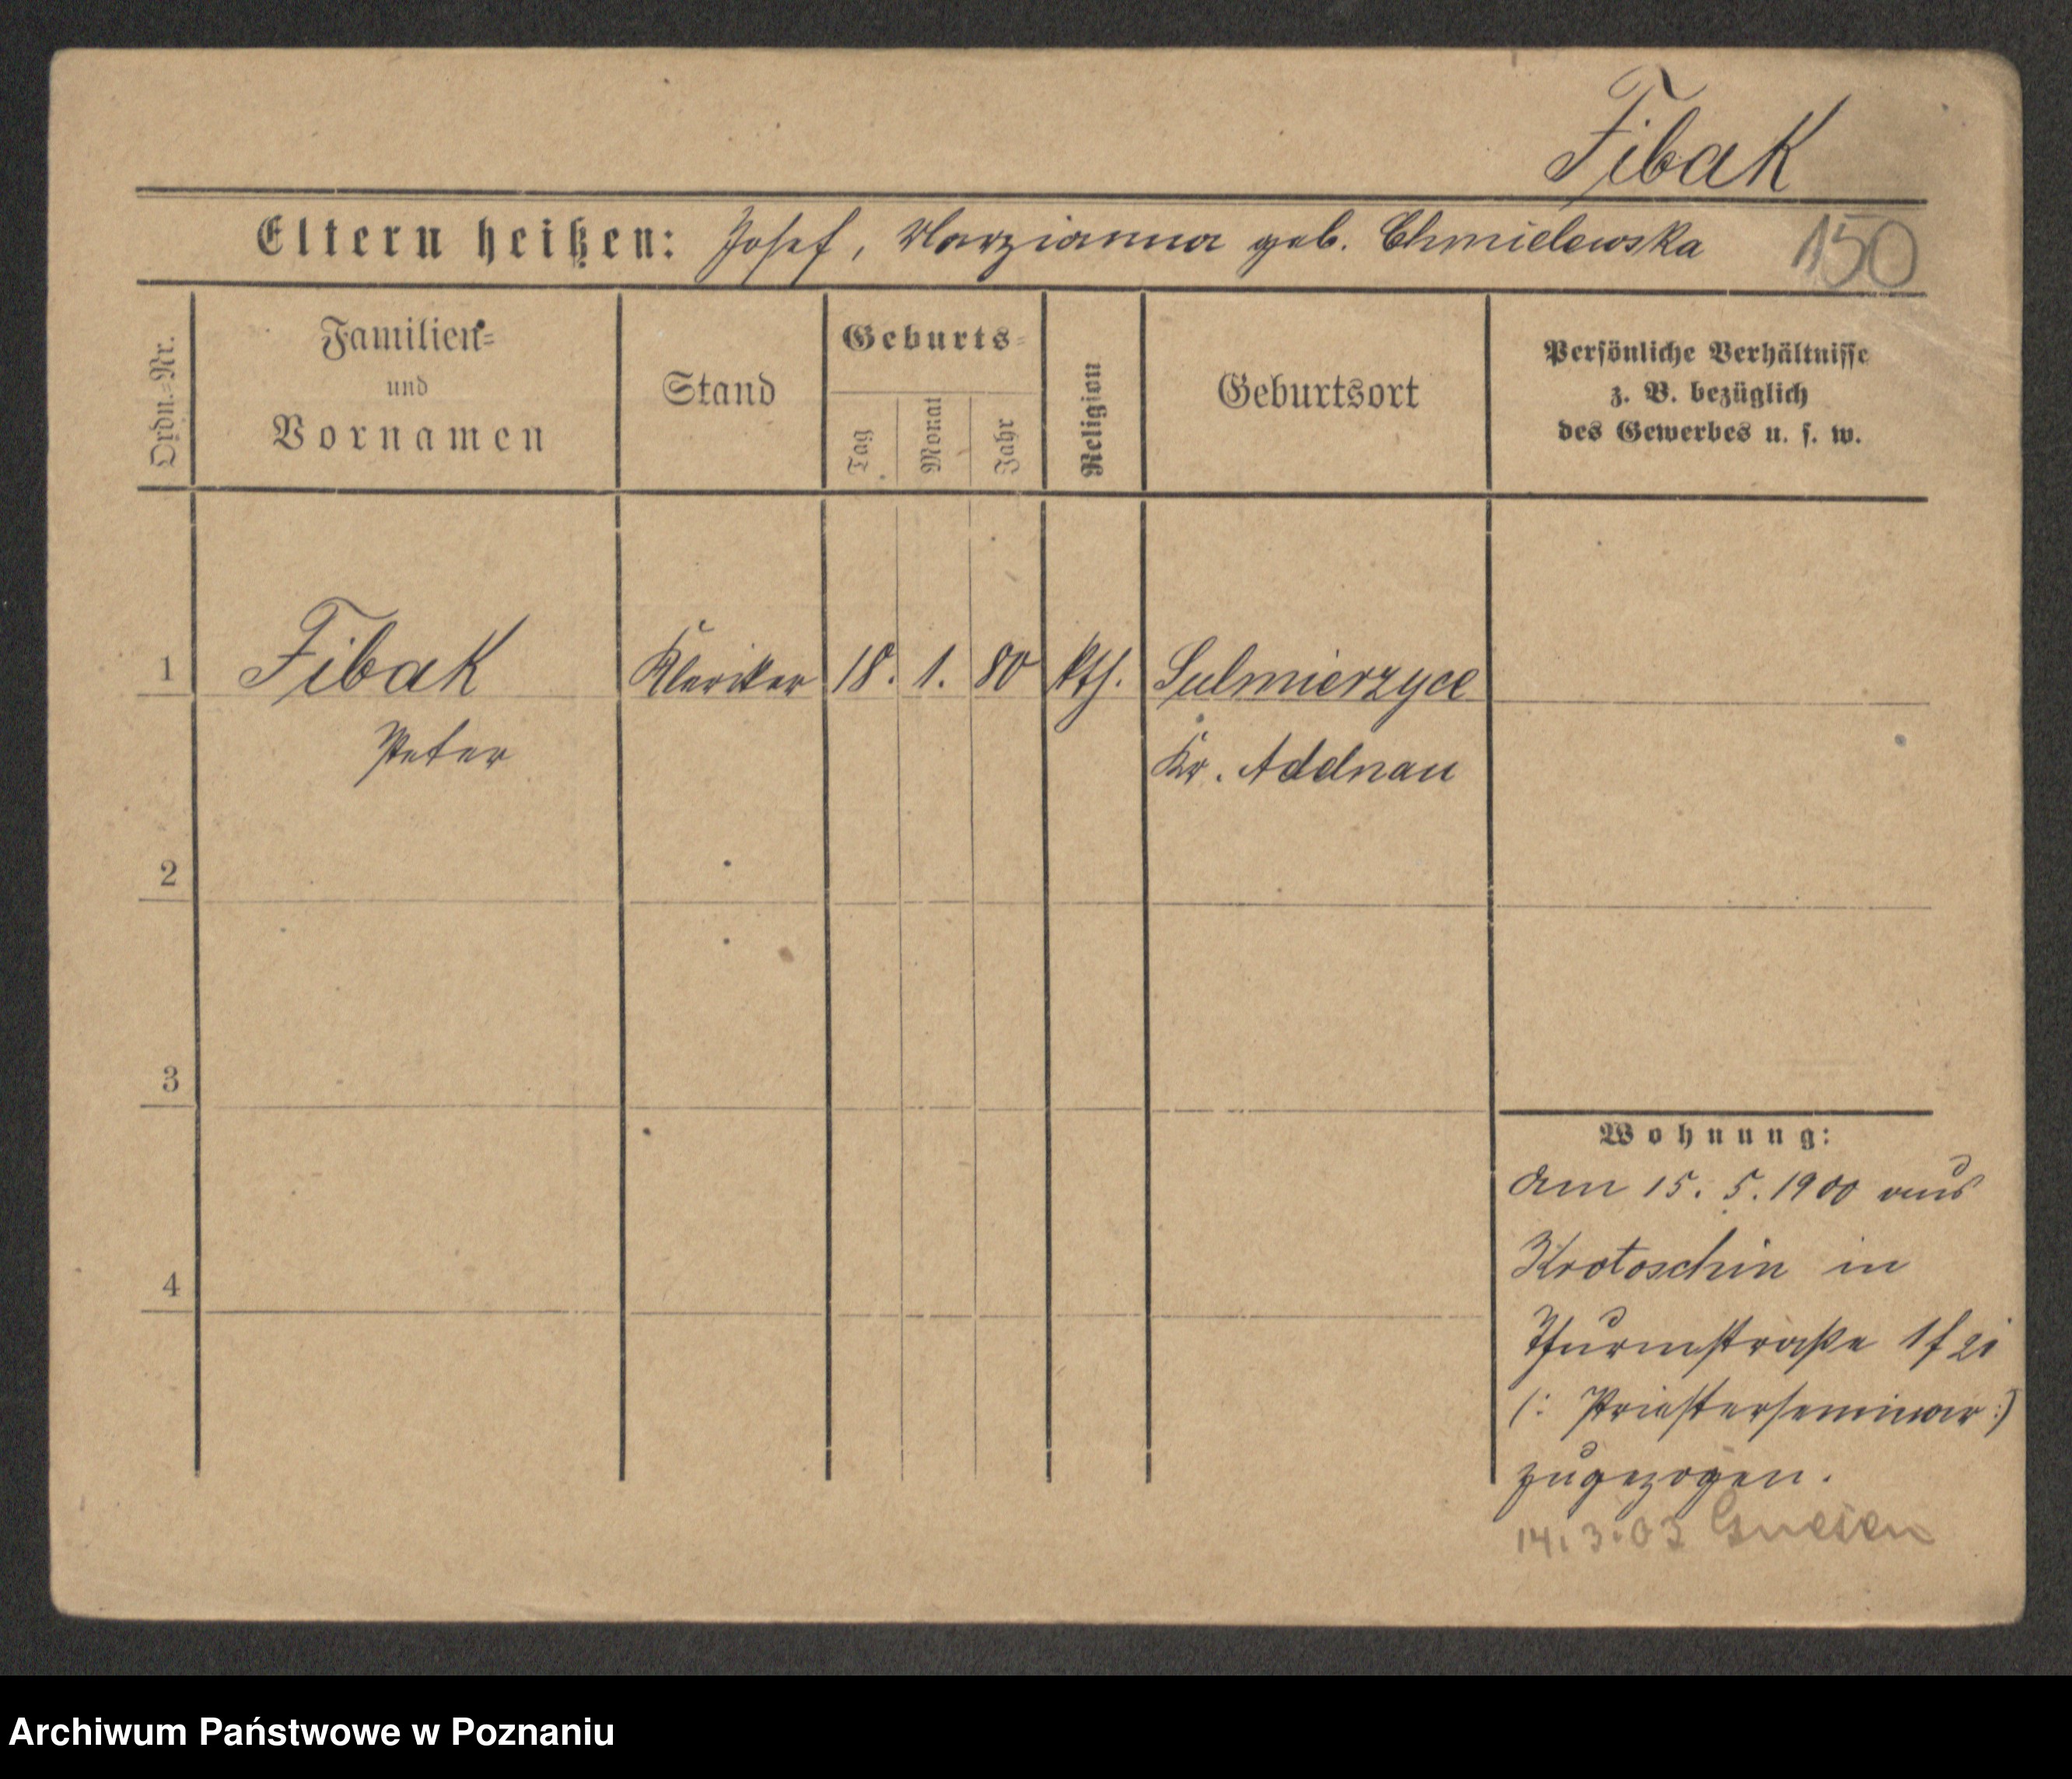 Fibak
Eltern heißen: Josef, Marzianna geb. Chmielewska 150
Ordn.-Nr.
Familien-
und
Vornamen
Stand
Geburts-
Tag
Monat
Jahr
Religion
Geburtsort
Persönliche Verhältnisse
z. B. bezüglich
des Gewerbes u. s. w.
1 Fibak Kleriker 18. 1. 80 kth. Sulmierzyce
Peter Kr. Adelnau
2
3
4
Wohnung:
Am 15. 5. 1900 aus
Krotoschin in
Thurmstraße 1
(: Priesterseminar :)
zugezogen.
14. 3. 03 Gnesen
Archiwum Państwowe w Poznaniu